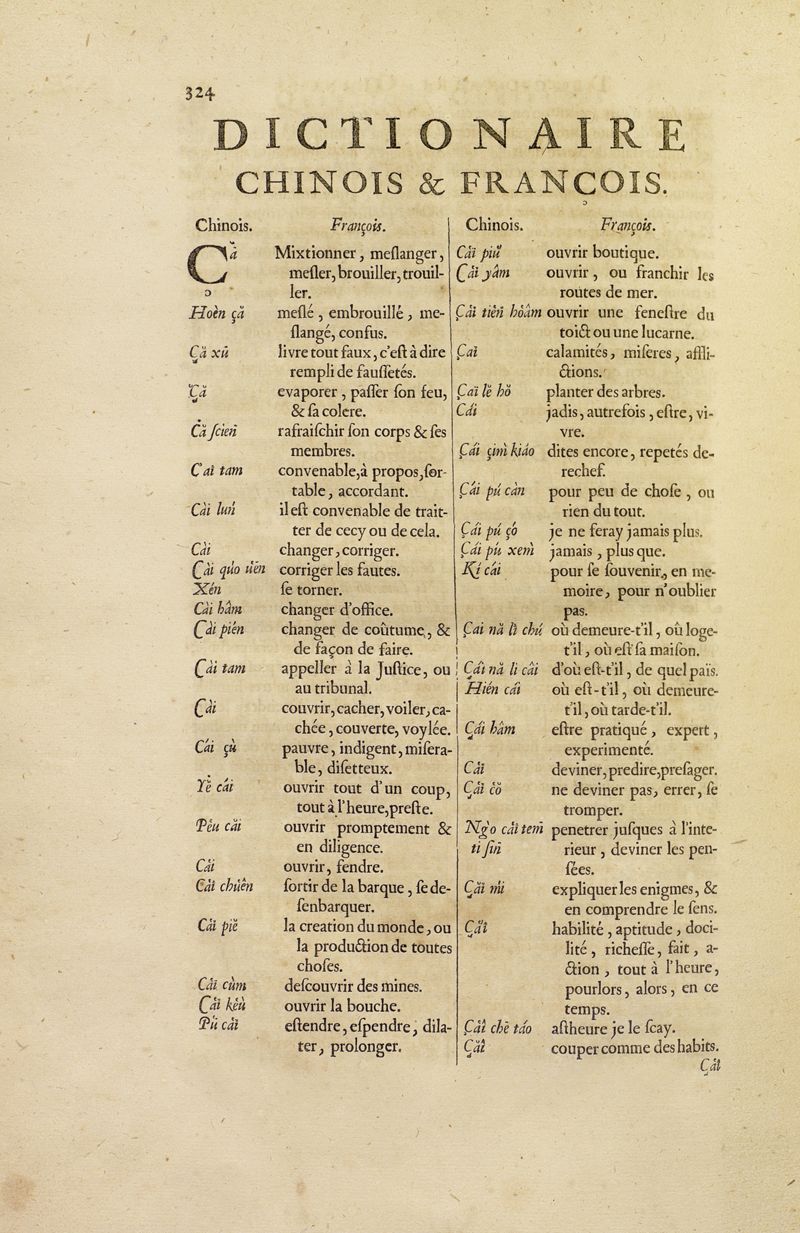 324
DICTIONAIRE
CHINOIS & FRANÇOIS.
Chinois. François.
Çă Mixtionner, meſlanger,
meſler, brouiller, trouil-
ler.
Hoèn çă meſlé, embrouillé, me-
ſlangé, confus.
Çă xū livre tout faux, c'eſt à dire
rempli de fauſſetés.
Çă evaporer, paſſer ſon feu,
& ſa colere.
Că ſcieñ rafraiſchir ſon corps & ſes
membres.
Caì tam convenable, à propos, ſor-
table, accordant.
Càì luñ il eſt convenable de trait-
ter de cecy ou de cela.
Càì changer, corriger.
Çàì qùo üèn corriger les fautes.
Xén ſe torner.
Càì hâm changer d'office.
Çàì pién changer de coûtume, &
de façon de faire.
Çàì tam appeller à la Juſtice, ou
au tribunal.
Çàì couvrir, cacher, voiler, ca-
chée, couverte, voylée.
Cáì çù pauvre, indigent, miſera-
ble, diſetteux.
Yĕ cáì ouvrir tout d'un coup,
tout à l'heure, preſte.
Pèu cāì ouvrir promptement &
en diligence.
Cáì ouvrir, fendre.
Cāì chüên ſortir de la barque, ſe de-
ſenbarquer.
Cāì piĕ la creation du monde, ou
la production de toutes
choſes.
Cāì cùm deſcouvrir des mines.
Çāì kèù ouvrir la bouche.
Pù cāì eſtendre, eſpendre, dila-
ter, prolonger.
Chinois. François.
Cāì piú ouvrir boutique.
Çāì yâm ouvrir, ou franchir les
routes de mer.
Çāì tièñ hòâm ouvrir une feneſtre du
toict ou une lucarne.
Çaì calamités, miſeres, affli-
ctions.
Çaì lĕ hŏ planter des arbres.
Cáì jadis, autrefois, eſtre, vi-
vre.
Çáì çim̀ kiáo dites encore, repetés de-
rechef.
Çáì pú càn pour peu de choſe, ou
rien du tout.
Çáì pú çó je ne feray jamais plus.
Çáì pú xem̀ jamais, plus que.
Kí cáì pour ſe ſouvenir, en me-
moire, pour n'oublier
pas.
Çaì nă lì chú où demeure-t'il, où loge-
t'il, où eſt ſa maiſon.
Çáì nă lì cāì d'où eſt-t'il, de quel païs.
Hién cáì où eſt-t'il, où demeure-
t'il, où tarde-t'il.
Çāì hâm eſtre pratiqué, expert,
experimenté.
Cāì deviner, predire, preſager.
Çāì cŏ ne deviner pas, errer, ſe
tromper.
Ngo cāì tem̀ penetrer juſques à l'inte-
tì ſiñ rieur, deviner les pen-
ſées.
Çāì mì expliquer les enigmes, &
en comprendre le ſens.
Çâì habilité, aptitude, doci-
lité, richeſſe, fait, a-
ction, tout à l'heure,
pourlors, alors, en ce
temps.
Çâì chĕ táo aſtheure je le ſcay.
Çâì couper comme des habits.
Çâì